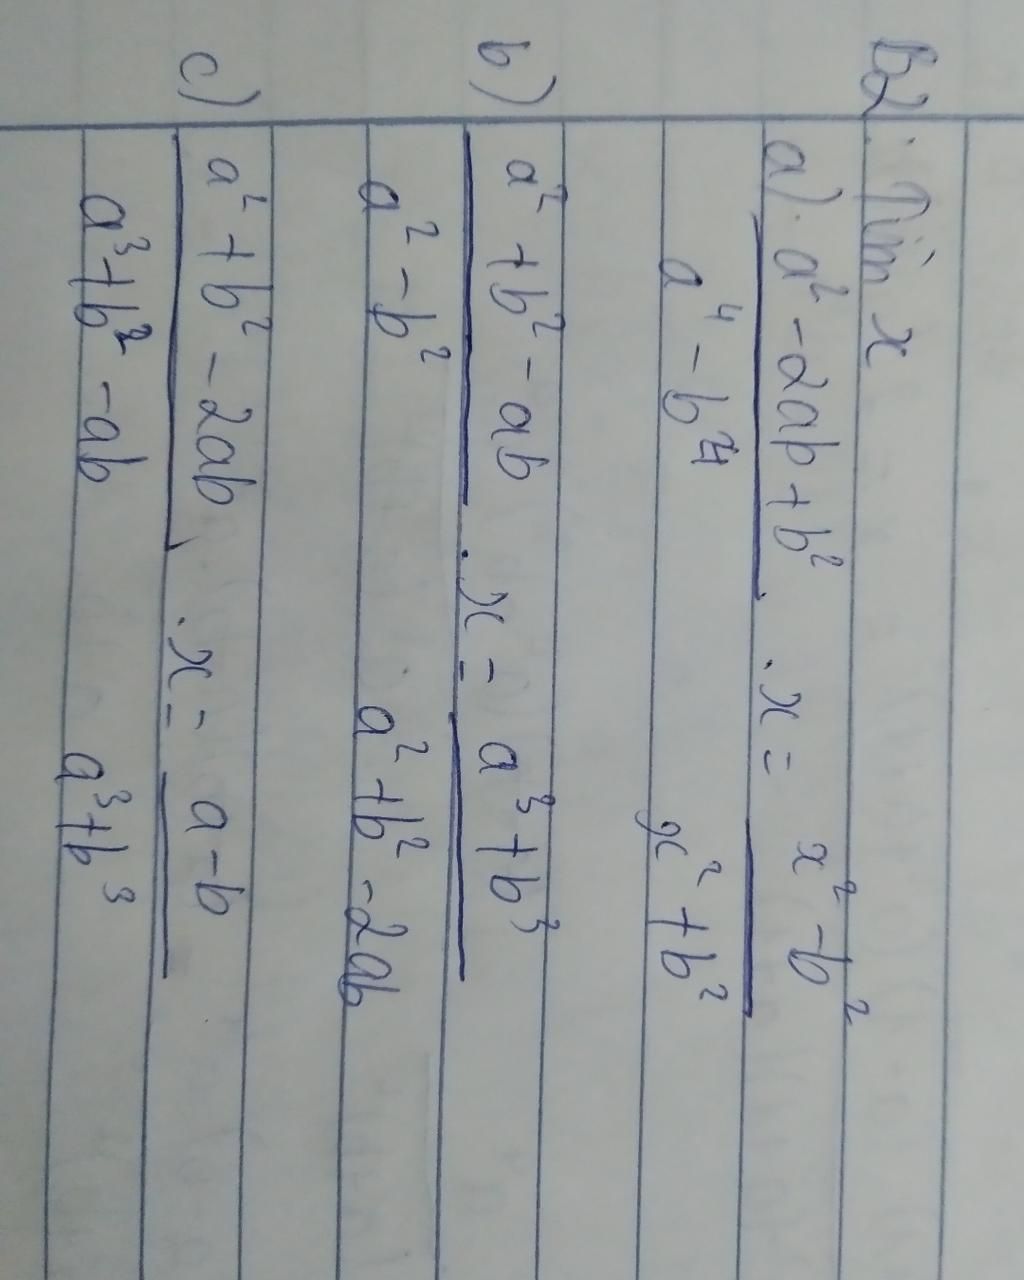 B2: Tìm x
a). a² - 2ab + b² / a⁴ - b⁴ . x = x² - b² / x² + b²
b) a² + b² - ab / a² - b² . x = a³ + b³ / a² + b² - 2ab
c) a² + b² - 2ab / a³ + b² - ab . x = a - b / a³ + b³